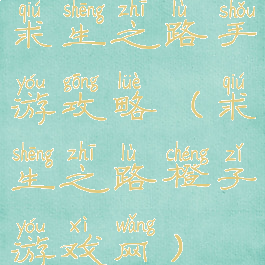 qiú shēng zhī lù shǒu
求生之路手
yóu gōng lüè qiú
游攻略（求
shēng zhī lù chéng zǐ
生之路橙子
yóu xì wǎng
游戏网）